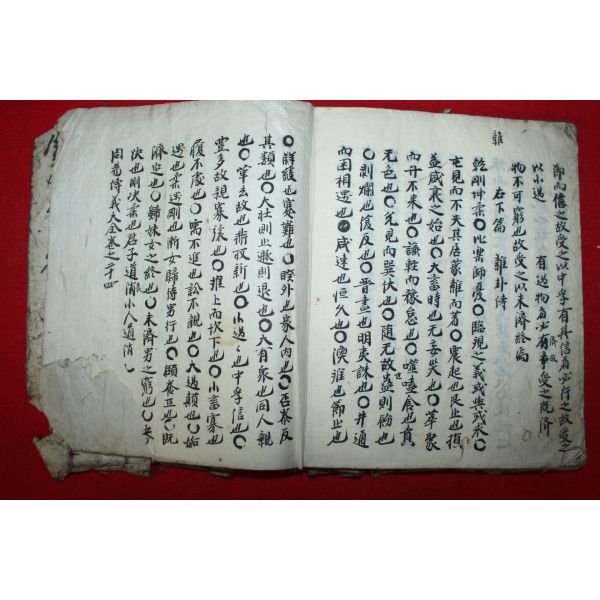 節而信之故受之以中孚有其信者必行之故受之
以小過 有過物者必有事受之既濟
濟故
物不可窮也故受之以未濟終焉
雜
右下篇 雜卦傳
乾剛坤柔○比樂師憂○臨觀之義或與或求○
屯見而不失其居蒙雜而著○震起也艮止也損
益盛衰之始也○大畜時也无妄災也○萃聚
而升不來也○謙輕而豫怠也○噬嗑食也賁
无色也○兌見而巽伏也○隨无故也蠱則飭也
○剝爛也復反也○晉晝也明夷誅也○井通
而困相遇也○咸速也恒久也○渙離也節止也
○解緩也蹇難也○睽外也家人內也○否泰反
其類也○大壯則止遯則退也○大有衆也同人親
也○革去故也鼎取新也○小過々也中孚信也○
豐多故親寡旅也○離上而坎下也○小畜寡也
履不處也○需不進也訟不親也○大過顚也姤
遇也柔遇剛也漸女歸待男行也○頤養正也既
濟定也○歸妹女之終也○未濟男之窮也○夬
決也剛決柔也君子道長小人道消○
周易傳義大全卷之二十四